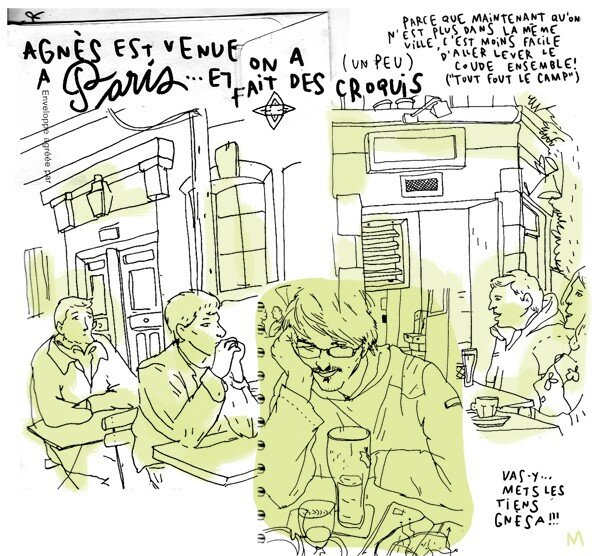 AGNÈS EST VENUE
A Paris...ET ON A
FAIT DES CROQUIS
(UN PEU)
PARCE QUE MAINTENANT QU'ON
N'EST PLUS DANS LA MÊME
VILLE, C'EST MOINS FACILE
D'ALLER LEVER LE
COUDE ENSEMBLE!
("TOUT FOUT LE CAMP")
Enveloppe agréée par
VAS-Y...
METS LES
TIENS
GNESA!!!
M